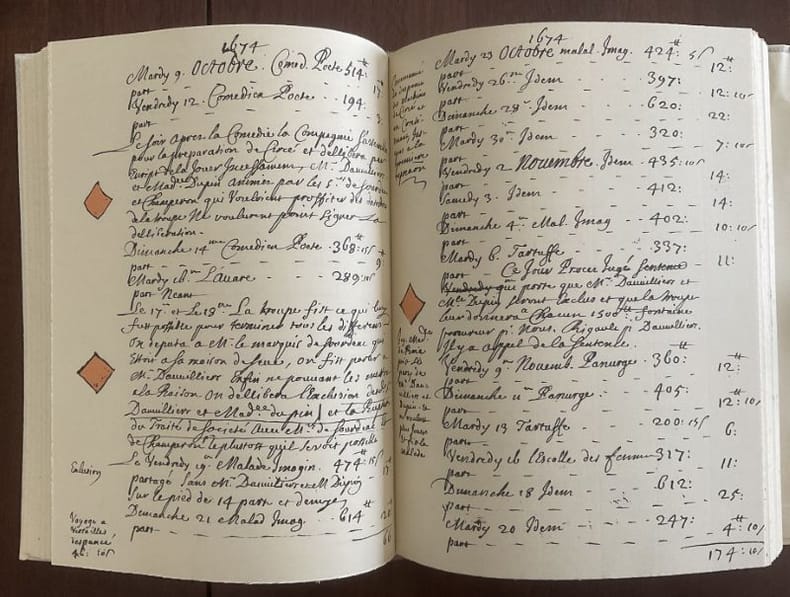 1674
Mardy 9. Octobre. Comed. Poete 514ᵗᵗ
part
Vendredy 12. Comedien Poete 194:
part
Le soir apres la Comedie la Compagnie
pour la preparation de Circé et delibera
de la Jouer Incessamment, Mr. Dauvilliers
et Madlle Dupin animez par les Srs. de Sourdeac
et Champeron qui vouloient proffiter
de la troupe Ne voulurent point signer La
délibération.
Dimanche 14me Comedien Poete 368:15s
part 9:
Mardy 16me L'avare 289:10s
part Neant
Le 17e. et Le 18me La troupe fist ce qui luy
fust possible pour terminer tous les differens
On deputa a Mr. le marquis de Sourdeac qui
estoit a sa maison de, on fist parler a
Mr. Dauvilliers Enfin ne pouvant les mettre
a la Raison On delibera l'exclusion de
Dauvilliers et Madlle dupin, et la
du Traité de Société Avec Mrs. de Sourdeac et
de Champeron le plustost qu'il seroit possible
Exclusion
Le Vendredy 19e Malade Imagin. 474ᵗᵗ:15s
partagé sans Mr. Dauvilliers et M Dupin
sur le pied de 14 parts et demye
Dimanche 21 Malad Imag. 614ᵗᵗ
part
Voyage a
Versailles
1674
Mardy 23 Octobre malal. Imag. 424:ᵗᵗ 5s
part 12ᵗᵗ:
Vendredy 26me Idem 397:
part 12:10s
Dimanche 28e Idem 620:
part 22:
Mardy 30e Idem 320:
part 7:10s
Vendredy 2 Nouembre. Idem 435:10s
part 14:
Samedy 3. Idem 412:
part 14:
Dimanche 4e Mal. Imag 402:
part 10:10s
Mardy 6. Tartuffe 337:
part 11:
Ce Jour Procez Jugé sentence
qui porte que Mr. Dauvilliers et
Mlle Dupin seront exclus et que la troupe
leur donnera a Chacun 1500ᵗᵗ fontaine
procureur pr. Nous. Rigault pr Dauvilliers.
Il y a appel de la Sentence.
Vendredy 9e Novemb. Panurge 360:
part 12:ᵗᵗ
Dimanche 11e Panurge 405:
part 12:10s
Mardy 13 Tartuffe 200:15s
part 6:
Vendredy 16 l'Escolle des femmes 317:
part 11:
Dimanche 18 Idem 612:
part 25:
Mardy 20 Idem 247:
part 4ᵗᵗ:10s
174:10s